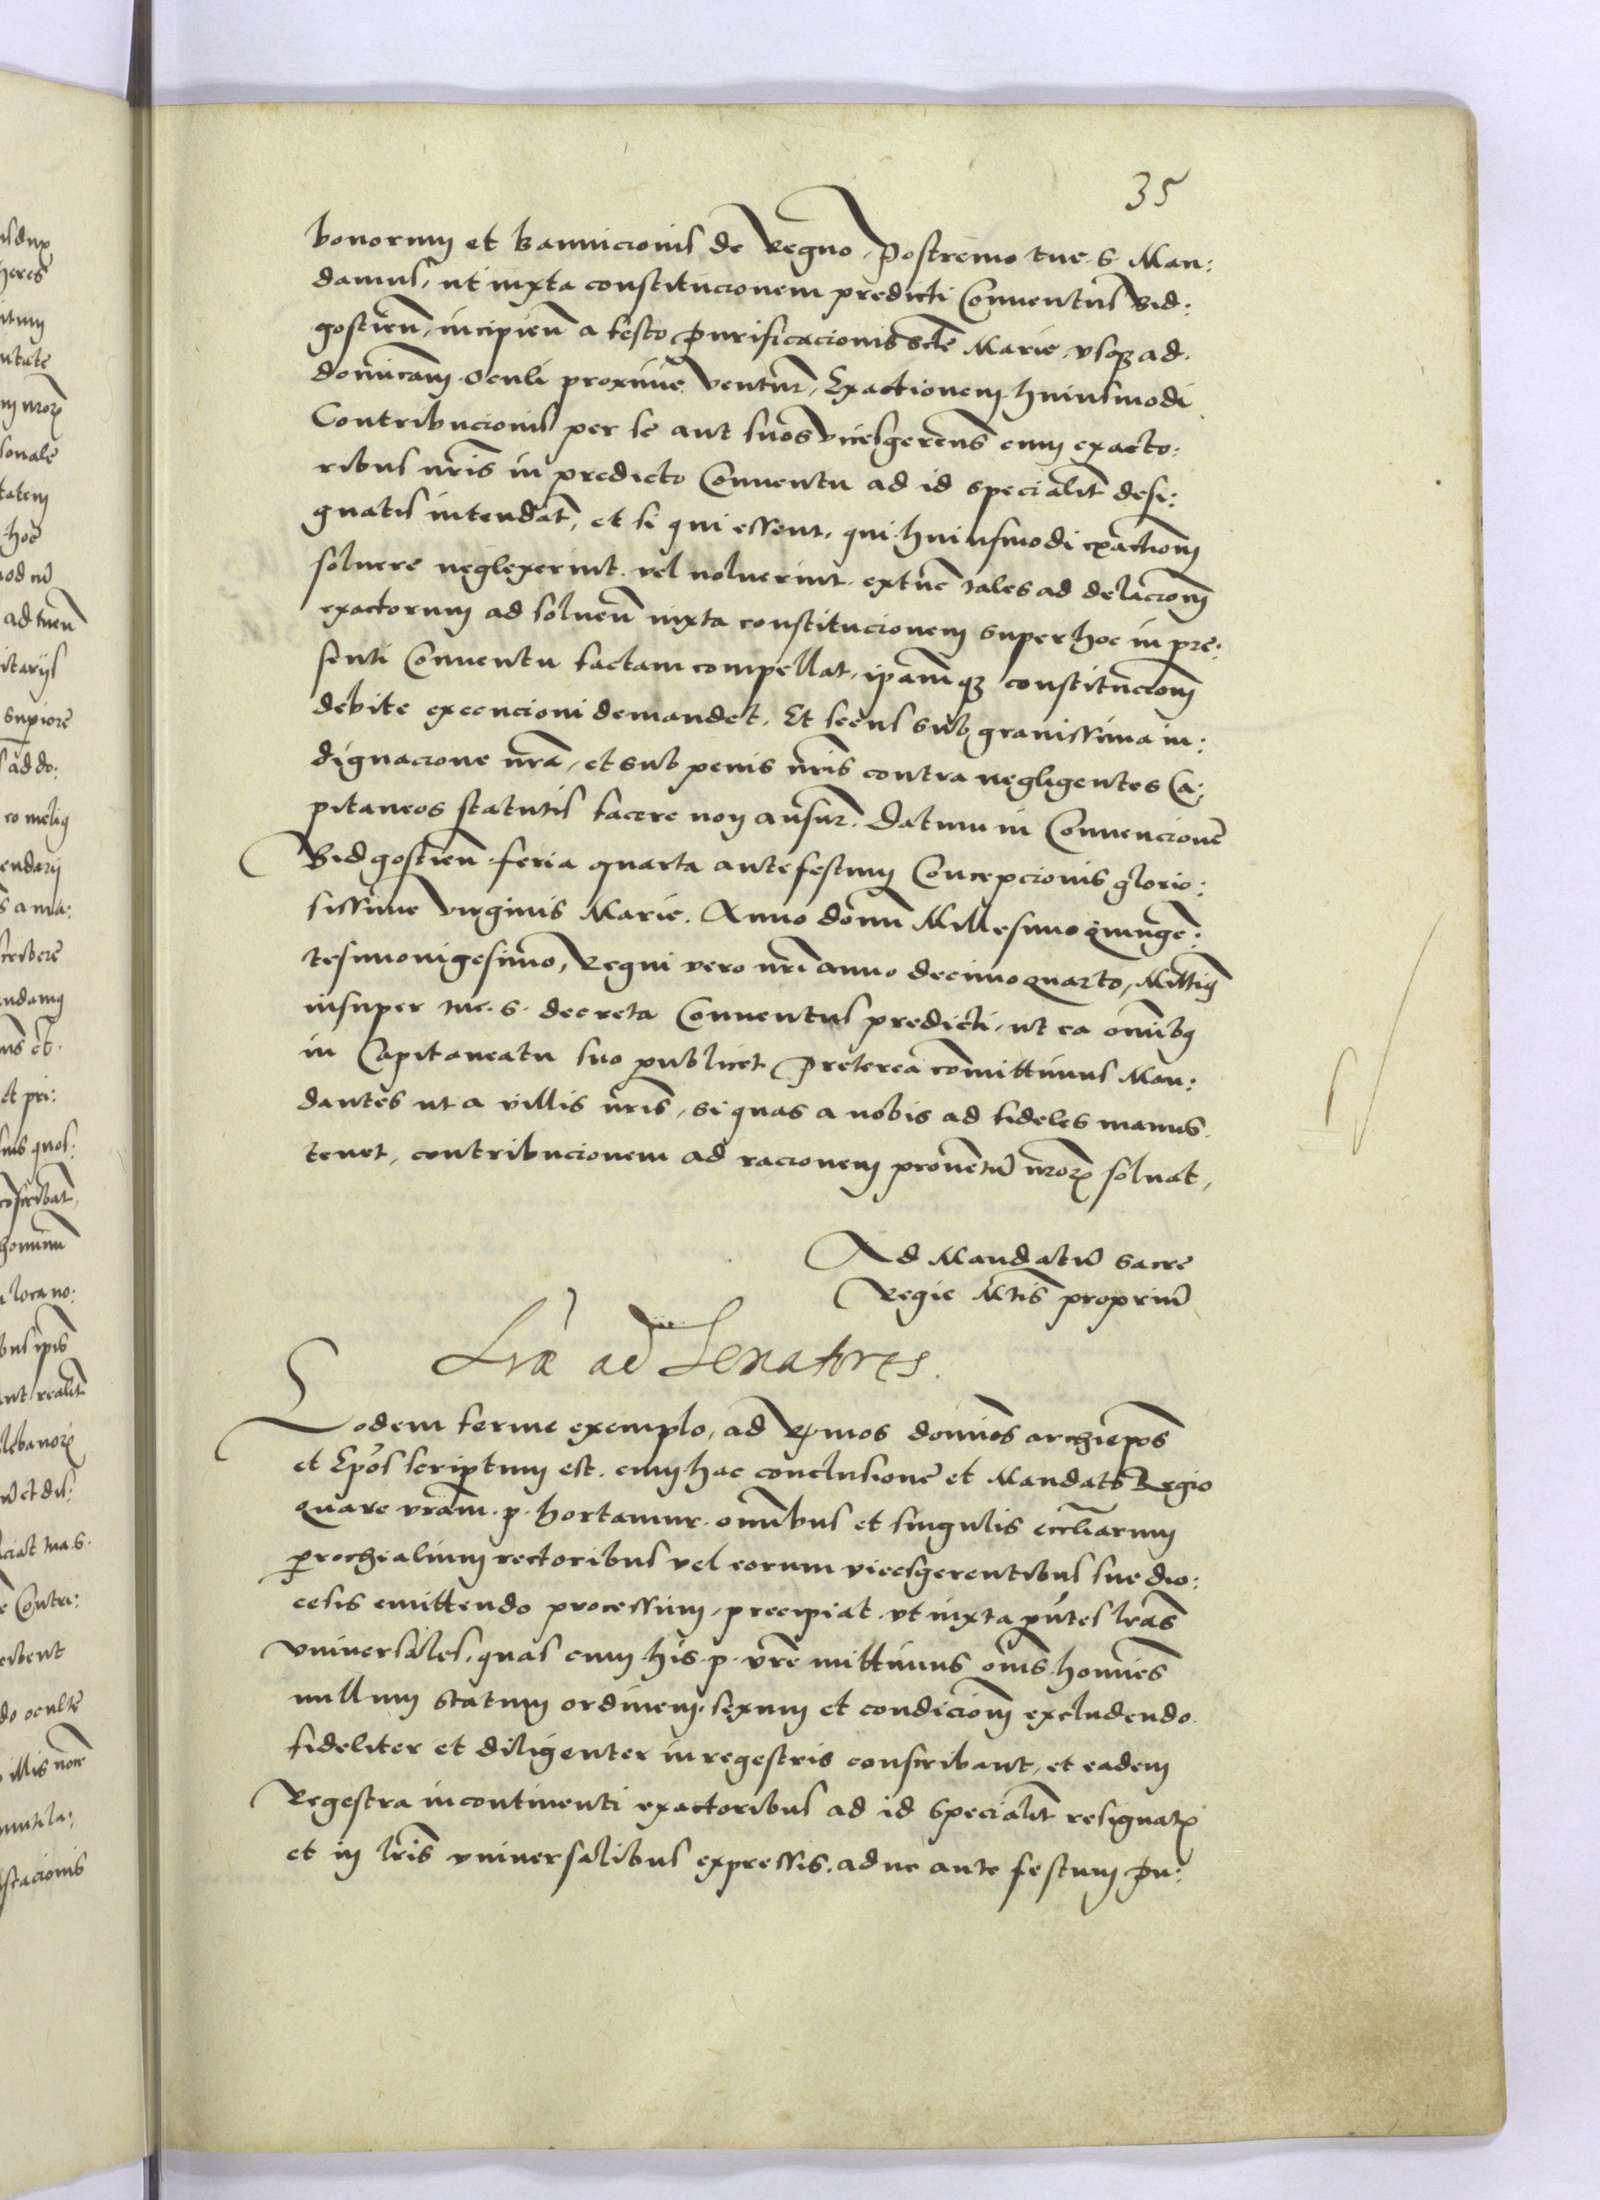 35
bonorum et bannicionis de Regno. Postremo tue. S. Man:
damus, ut iuxta constitucionem predicti Conuentus Bid:
gostien̄, incipien̄ a festo Purificacionis scte Marie, vsqꝫ ad
dominicam Oculi proxime ventur̄, Exactionem huiusmodi
Contribucionis per se aut suos vicesgerentes cum exacto:
ribus nr̄is in predicto Conuentu ad id specialit̄ desi:
gnatis intendat, et si qui essent, qui huiusmodi exactionē
soluere neglexerint vel noluerint extūc tales ad delacionē
exactorum ad soluen̄ iuxta constitucionem super hoc in pre:
senti Conuentu factam compellat, ipamqꝫ constitucionē
debite execucioni demandet, Et secus sub grauissima in:
dignacione nr̄a, et sub penis nr̄is contra negligentes Ca:
pitaneos statutis facere non ausur̄. Datum in Conuencione
Bidgostien̄ feria quarta ante festum Concepcionis glorio:
sissime virginis Marie. Anno domī Millesimo quinge:
tesimovigesimo, Regni vero nr̄i anno decimoquarto, Mittimꝯ
insuper tue. S. decreta Conuentus predicti, ut ea omibꝯ
in Capitaneatu suo publicet Preterea comittimus Man:
dantes ut a villis nr̄is, si quas a nobis ad fideles manus
tenet, contribucionem ad racionem prouentū nr̄oꝝ soluat,
Ad Mandatū sacre
Regie Mtis propriū
Lr̄æ ad Senatores.
Eodem ferme exemplo, ad Rmos dominos archiepos
et Epos scriptum est. cum hac conclusione et Mandato Regio
Quare vr̄am. p. hortamur omibus et singulis eccliarum
ꝑrochialium rectoribus vel eorum vicesgerentibus sue dio:
cesis emittendo processum, precipiat vt iuxta pn̄tes lr̄as
vniuersales, quas cum his. p. vr̄e mittimus om̄s homines
nullum statum ordinem, sexum et condicionē excludendo
fideliter et diligenter in regestris conscribant, et eadem
Regestra incontinenti exactoribus ad id specialit̄ resignatꝭ
et in lr̄is vniuersalibus expressis, ad ve ante festum Pu: